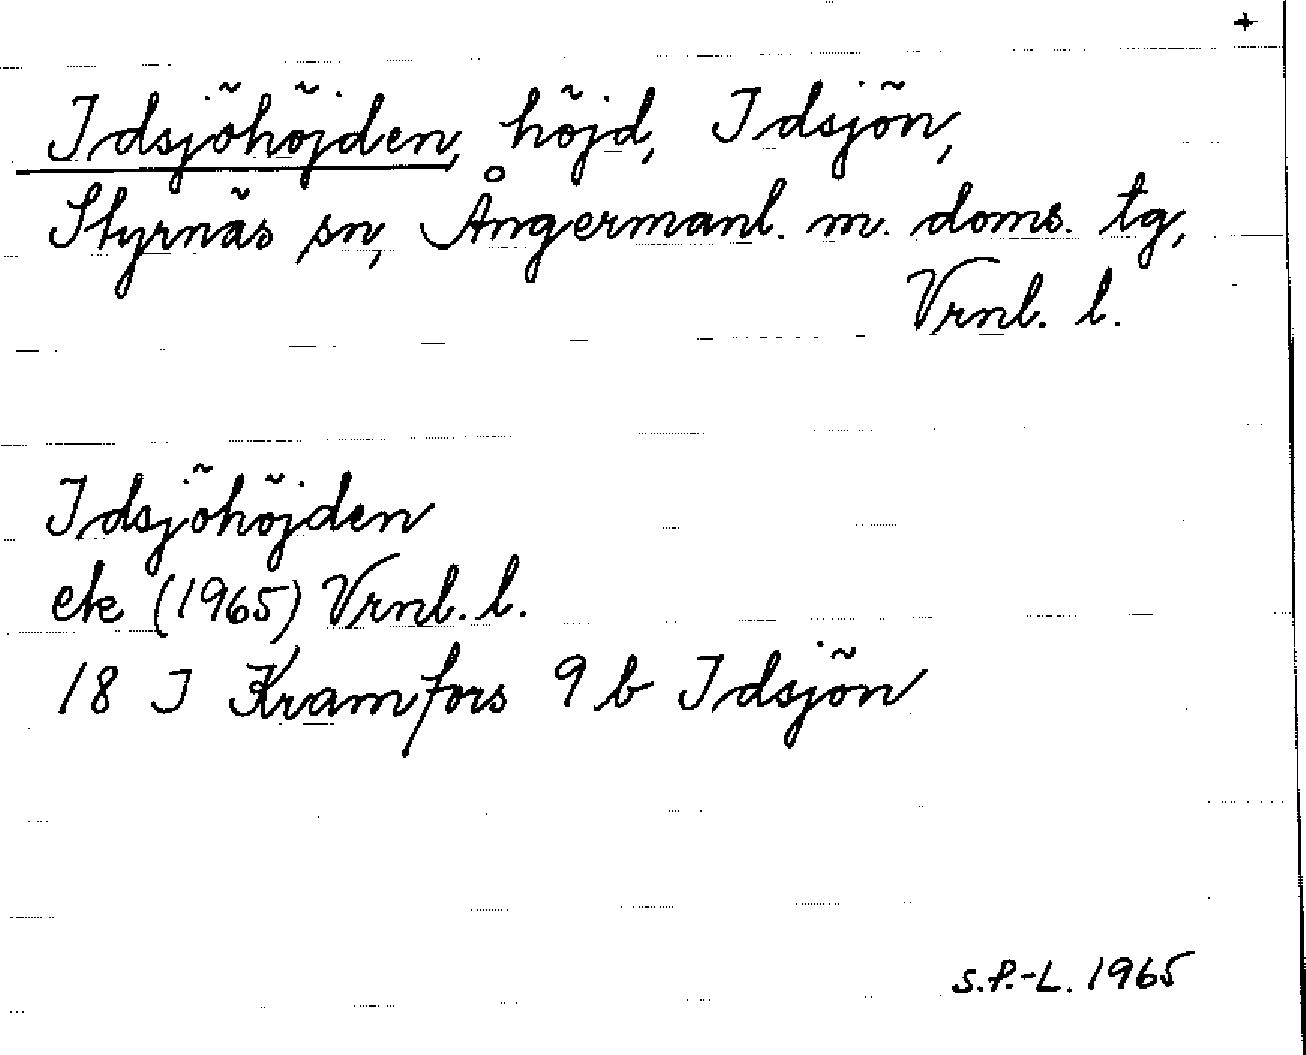 +
Idsjöhöjden, höjd, Idsjön,
Styrnäs sn, Ångermanl. m. doms. tg,
Vrnl. l.
Idsjöhöjden
ek (1965) Vrnl. l.
18 I Kramfors 9 b Idsjön
S.P.-L. 1965